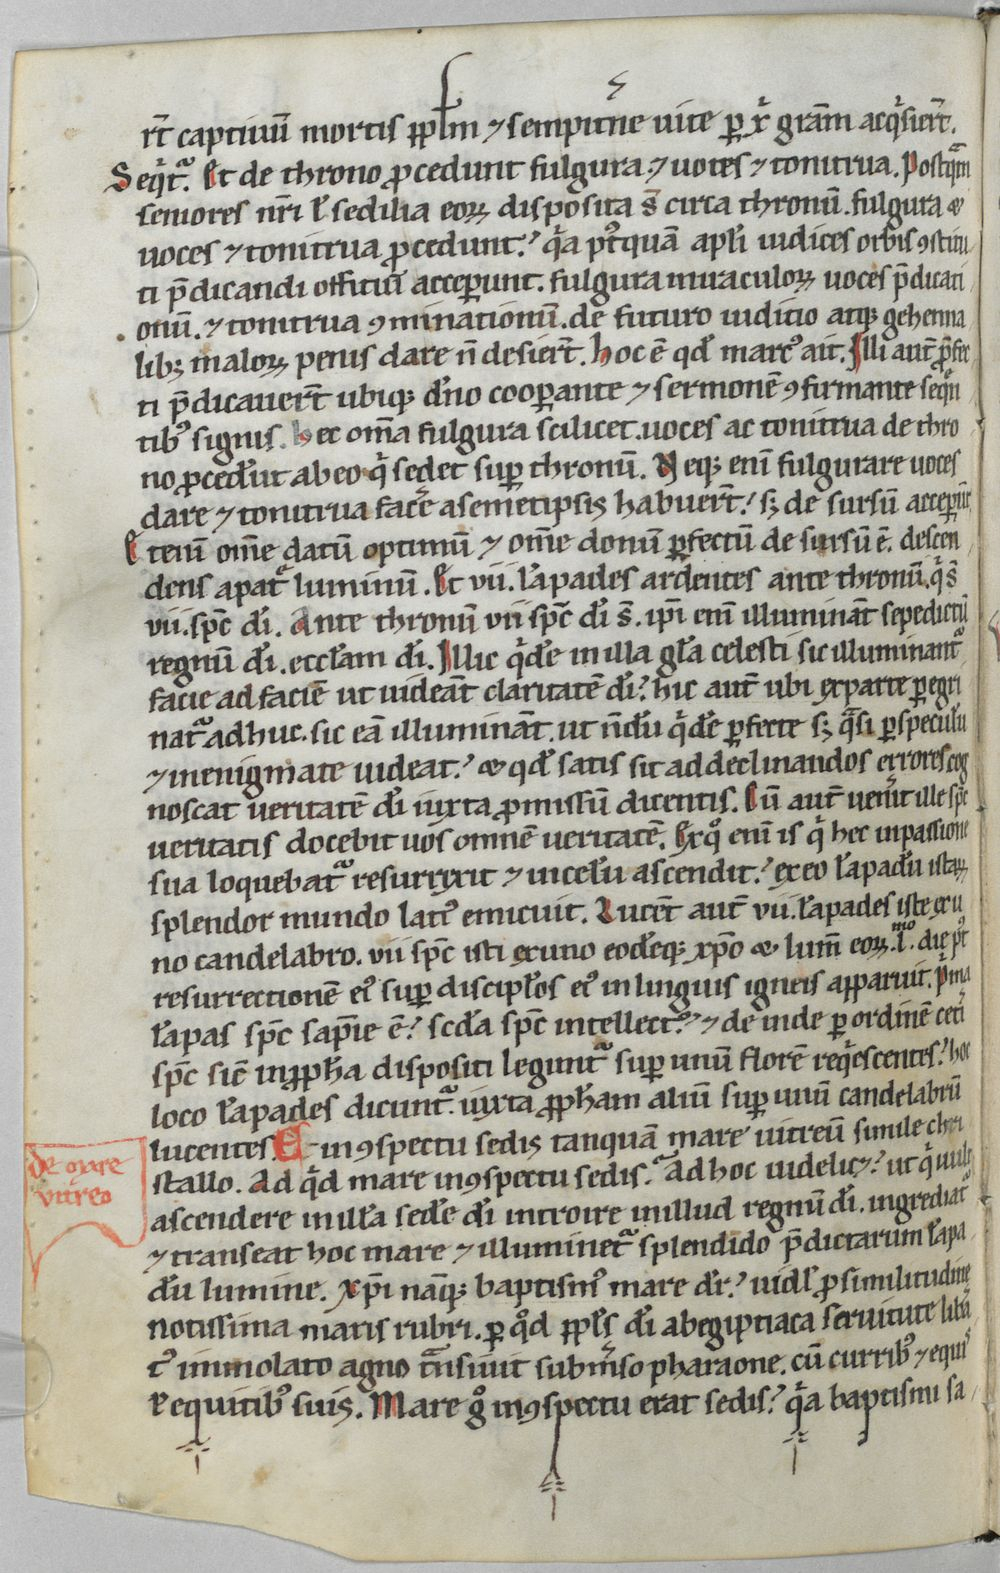 rt̄ captiuū mortis pplm ⁊ sempitne uite ꝑ x̄ gram acq̇sierт̄.
Seq̇t᷑. Et de throno ꝓcedunt fulgura. ⁊ uoces ⁊ tonitrua. Postq̄m
seniores nr̄i ł sedilia eoꝝ disposita s̄ circa thronū. fulgura ⁊
uoces ⁊ tonitrua ꝓcedunt? q̇a pꝰtquā apłi iudices orbis ꝯstitu
ti p̄dicandi offitiū acceꝑunt. fulgura miraculoꝝ uoces p̄dicati
onū. ⁊ tonitrua ꝯminationū. de futuro iuditio atqꝫ gehenna
libꝫ maloꝝ penis dare n̄ desierт̄. hoc ē qd̄ marcꝰ ait. Illi aut̄ ꝓfec
ti p̄dicauert̄ ubiqꝫ dn̄o cooꝑante ⁊ sermonē ꝯfirmante seq̄n
tibꝰ signis. hec om̄a fulgura scilicet. uoces ac tonitrua de thro
no ꝓcedūt ab eo q̇ sedet suꝑ thronū. Neqꝫ enī fulgurare uoces
dare ⁊ tonitrua facē a semetipsis habuert̄? sꝫ de sursū acceꝑūt
Etenī om̄e datū optimū ⁊ om̄e donū ꝑfectū de sursū ē. descen
dens a pat᷑ luminū. Et vii. lāpades ardentes ante thronū. q̇ s̄
vii. sp̄c di̅. Ante thronū vii sp̄c di̅ s̄. ip̄i enī illuminānt sepedictū
regnū di̅. eccłam di̅. Illic q̇dē in illa gła celesti sic illuminant᷑
facie ad faciē ut uideānt claritatē di̅? hic aut̄ ubi ex parte ꝑegri
nat᷑ adhuc. sic eā illuminānt. ut n̄dū q̇dē ꝑfecte sꝫ q̄si ꝑ speculū
⁊ in enigmate uideat? ⁊ qd̄ satis sit ad declinandos errores cog
noscat ueritatē di̅ iuxta ꝓmissū dicentis. Cū aut̄ uen̄it ille sp̄c
ueritatis docebit uos omnē ueritatē. Ex q̊ enī is q̇ hec in passione
sua loquebat᷑ resurrexit ⁊ in celū ascendit? ex eo lāpadū istaꝝ
splendor mundo latꝰ emicuit. Lucēnt aut̄ vii. lāpades iste ex u
no candelabro. vii sp̄c isti ex uno eodēqꝫ xp̄o ⁊ lum̄ eoꝝ .l.mo die pꝰt
resurrectionē eiꝰ suꝑ discipłos eiꝰ in linguis igneis apparuit. ṗma
lāpas sp̄c sap̄ie ē? scd̄a sp̄c intellectꝰ? ⁊ deinde ꝑ ordinē cet̄i
sp̄c sic̄ in ꝓph̄a dispositi legunt᷑ suꝑ unū florē req̇escentes? hoc
loco lāpades dicunt᷑. iuxta ꝓph̄am aliū suꝑ unū candelabrū
lucentes. Et in ꝯspectu sedis tanquā mare uitreū simile cri
stallo. Ad q̇d mare in ꝯspectu sedis? ad hoc uidelicꝫ? ut q̇ uult
ascendere in illā sedē di̅ introire in illud regnū di̅. ingrediat᷑
⁊ transeat hoc mare ⁊ illuminet᷑ splendido p̄dictarum lāpa
dū lumine. Xp̄i nāqꝫ baptismꝰ mare dr̄? uidl̄ ꝓ similitudine
notissima maris rubri. ꝑ qd̊ ppłs di̅ ab egiptiaca seruitute libā
tꝰ immolato agno trānsiuit submso pharaone. cū curribꝰ ⁊ equiꝰ
ł equitibꝰ suis. Mare g̊ in ꝯspectu erat sedis? q̇a baptismi sa
de mare
vitreo